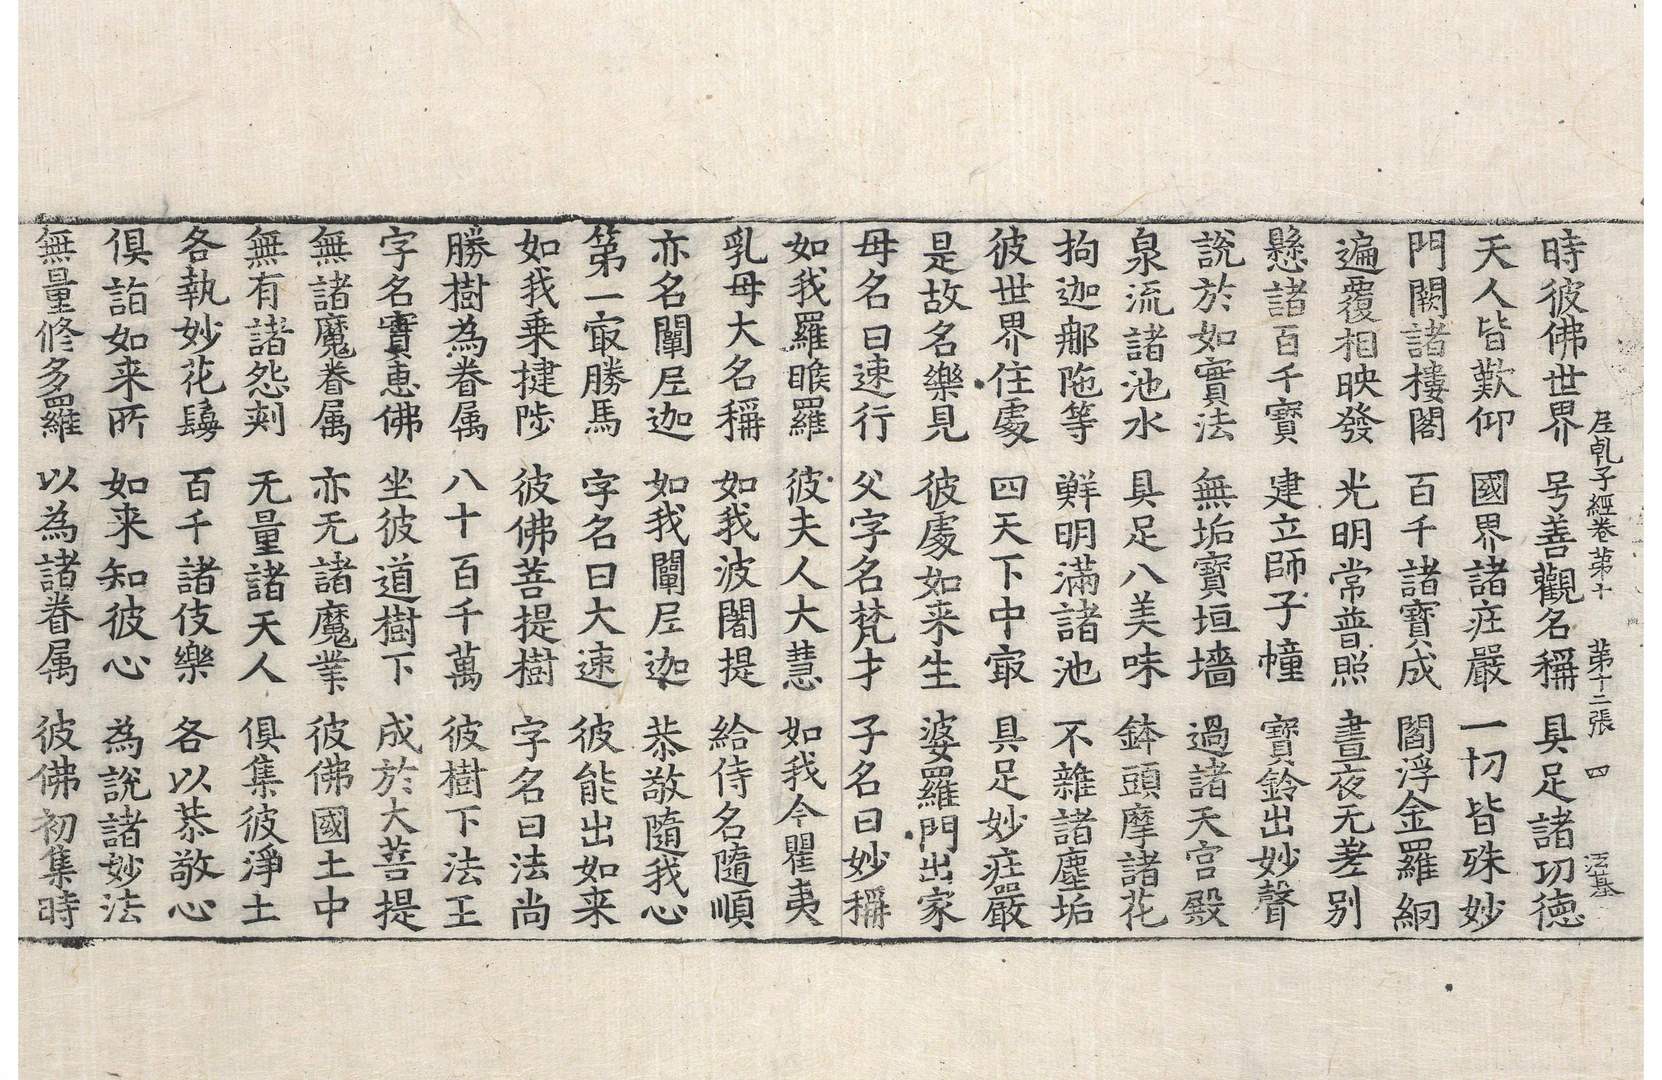 𡰱乹子經卷苐十　苐十二張　四
時彼佛世界　号善觀名稱　具足諸㓛徳
天人皆歎仰　國界諸疘嚴　一切皆殊妙
門闕諸樓閣　百千諸寶成　閻浮金羅網
遍覆相映發　光明常普照　晝夜无差别
懸諸百千寶　建立師子幢　寶鈴出妙聲
說於如實法　無垢寶垣墻　過諸天宫殿
泉流諸池水　具足八美味　鉢頭摩諸花
拘迦那陁等　鮮明滿諸池　不雜諸塵垢
彼世界住處　四天下中㝡　具足妙疘嚴
是故名樂見　彼處如来生　婆羅門出家
母名曰速行　父字名梵才　子名曰妙稱
如我羅睺羅　彼夫人大慧　如我今瞿夷
乳母大名稱　如我波闍提　給侍名隨順
亦名闡𡰱迦　如我闡𡰱迦　恭敬隨我心
第一㝡勝馬　字名曰大速　彼能出如来
如我乗揵陟　彼佛菩提樹　字名曰法尚
勝樹為眷属　八十百千萬　彼樹下法王
字名寶恵佛　坐彼道樹下　成於大菩提
無諸魔眷属　亦无諸魔業　彼佛國土中
無有諸怨刾　无量諸天人　俱集彼淨土
各執妙花鬘　百千諸伎樂　各以恭敬心
俱詣如来所　如来知彼心　為説諸妙法
無量修多羅　以為諸眷属　彼佛初集時